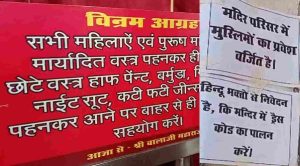 विनम्र आग्रह
सभी महिलाऐं एवं पुरुष म
मर्यादित वस्त्र पहनकर ही
छोटे वस्त्र हाफ पेन्ट, बर्मुडा, मि
नाईट सूट, कटी फटी जीन्स
पहनकर आने पर बाहर से ही
सहयोग करें।
आज्ञा से - श्री बालाजी महारा
मंदिर परिसर में
मुस्लिमों का प्रवेश
वर्जित है।
हिन्दू भक्तो से निवेदन
है, कि मन्दिर में ड्रेस
कोड का पालन
करें।